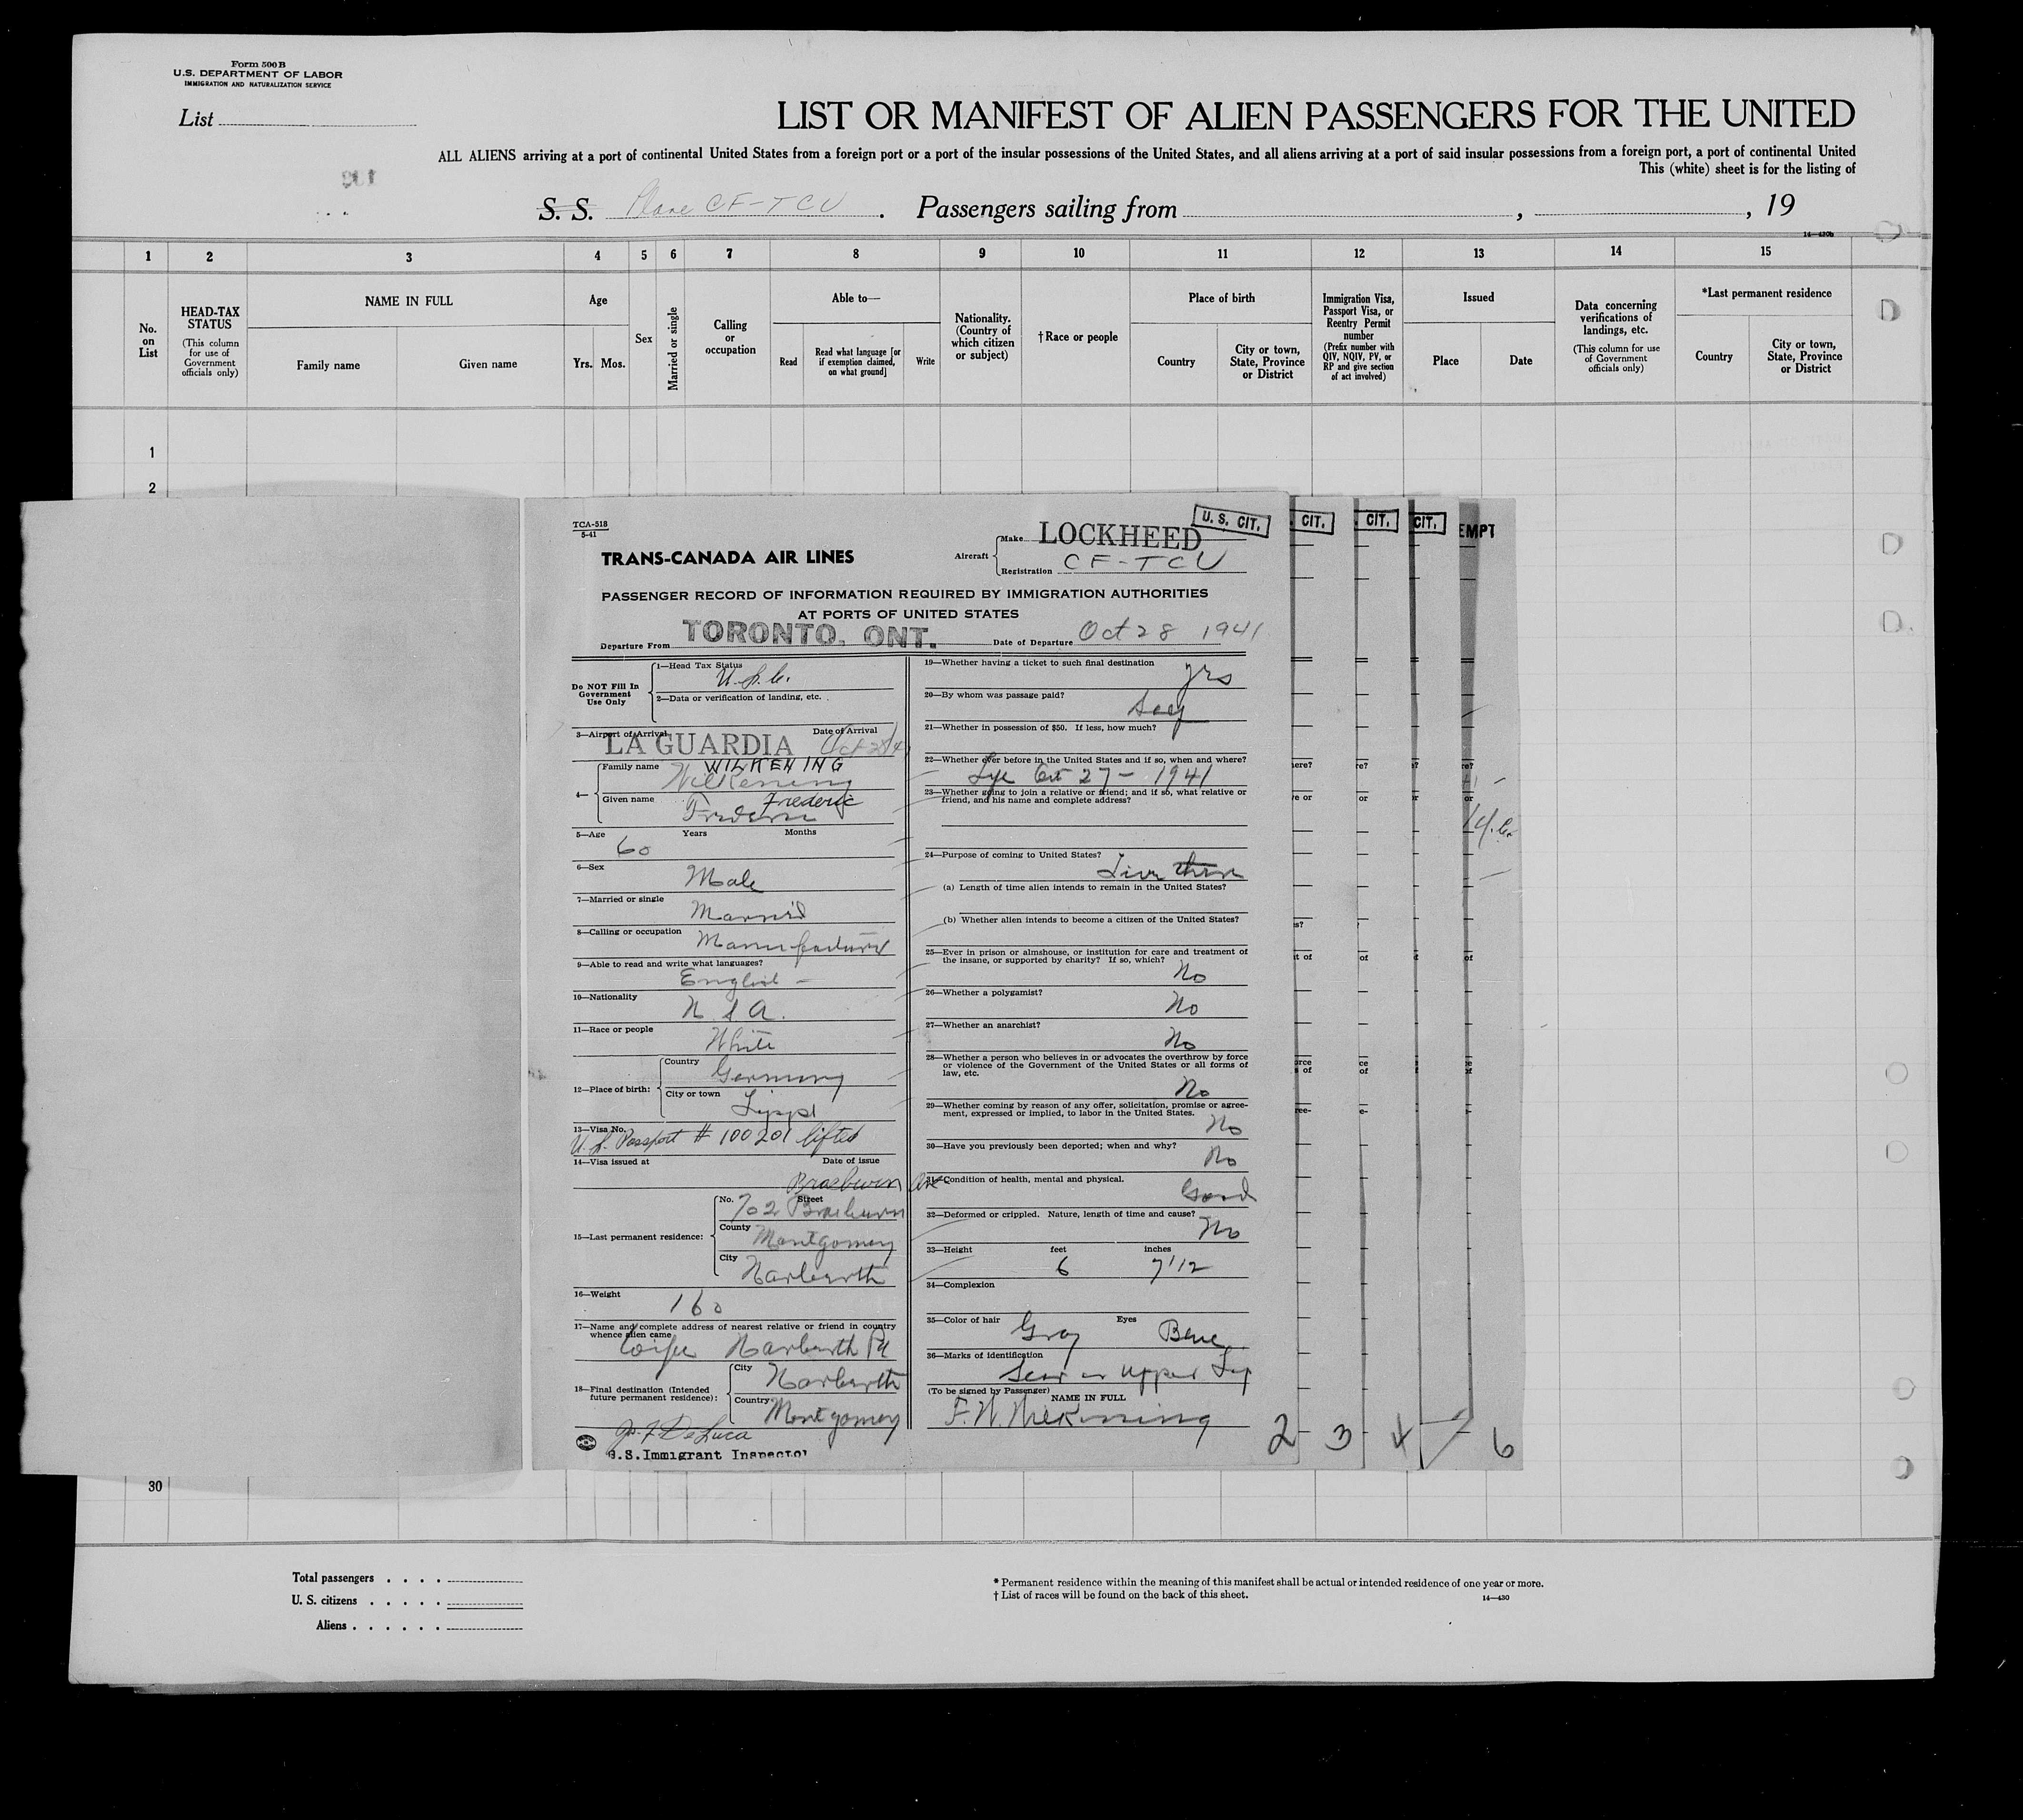 Form 500B
U.S. DEPARTMENT OF LABOR
IMMIGRATION AND NATURALIZATION SERVICE
List
LIST OR MANIFEST OF ALIEN PASSENGERS FOR THE UNITED
ALL ALIENS arriving at a port of continental United States from a foreign port or a port of the insular possessions of the United States, and all aliens arriving at a port of said insular possessions from a foreign port, a port of continental United
This (white) sheet is for the listing of
S. S. Plane CF-TCU . Passengers sailing from , , 19
14—430b
1 2 3 4 5 6 7 8 9 10 11 12 13 14 15
No. on List
HEAD-TAX STATUS
(This column for use of Government officials only)
NAME IN FULL
Family name
Given name
Age
Yrs. Mos.
Sex
Married or single
Calling or occupation
Able to—
Read
Read what language [or if exemption claimed, on what ground]
Write
Nationality. (Country of which citizen or subject)
† Race or people
Place of birth
Country
City or town, State, Province or District
Immigration Visa, Passport Visa, or Reentry Permit number
(Prefix number with QIV, NQIV, PV, or RP and give section of act involved)
Issued
Place
Date
Data concerning verifications of landings, etc.
(This column for use of Government officials only)
*Last permanent residence
Country
City or town, State, Province or District
1
2
TCA-518
5-41
TRANS-CANADA AIR LINES
Aircraft
Make LOCKHEED
U. S. CIT.
CIT.
CIT.
CIT.
EMPT
Registration CF-TCU
PASSENGER RECORD OF INFORMATION REQUIRED BY IMMIGRATION AUTHORITIES
AT PORTS OF UNITED STATES
Departure From TORONTO, ONT. Date of Departure Oct 28 1941
Do NOT Fill In Government Use Only
1—Head Tax Status U.S.C.
2—Data or verification of landing, etc.
3—Airport of Arrival LA GUARDIA Date of Arrival Oct 28/41
4—
Family name WILKENING
Wilkening
Given name Frederic
Frederic
5—Age Years Months
60
6—Sex Male
7—Married or single Married
8—Calling or occupation Manufacturer
9—Able to read and write what languages?
English –
10—Nationality U S A.
11—Race or people White
12—Place of birth:
Country Germany
City or town Lippe
13—Visa No.
U.S. Passport # 100201 lifted
14—Visa issued at Date of issue
Braeburn Ave
15—Last permanent residence:
No. Street
702 Braeburn
County Montgomery
City Narberth
16—Weight 160
17—Name and complete address of nearest relative or friend in country whence alien came
Wife Narberth Pa
18—Final destination (Intended future permanent residence):
City Narberth
Country Montgomery
DeLuca
U.S.Immigrant Inspector
19—Whether having a ticket to such final destination yes
20—By whom was passage paid? Self
21—Whether in possession of $50. If less, how much?
22—Whether ever before in the United States and if so, when and where?
Oct 27 – 1941
23—Whether going to join a relative or friend; and if so, what relative or friend, and his name and complete address?
24—Purpose of coming to United States?
Live there
(a) Length of time alien intends to remain in the United States?
(b) Whether alien intends to become a citizen of the United States?
25—Ever in prison or almshouse, or institution for care and treatment of the insane, or supported by charity? If so, which? No
26—Whether a polygamist? No
27—Whether an anarchist? No
28—Whether a person who believes in or advocates the overthrow by force or violence of the Government of the United States or all forms of law, etc. No
29—Whether coming by reason of any offer, solicitation, promise or agreement, expressed or implied, to labor in the United States. No
30—Have you previously been deported; when and why? No
31—Condition of health, mental and physical. Good
32—Deformed or crippled. Nature, length of time and cause? No
33—Height feet inches
6 7 1/2
34—Complexion
35—Color of hair Gray Eyes Blue
36—Marks of identification
Scar on upper Lip
(To be signed by Passenger) NAME IN FULL
F. W. Wilkening
2 3 4 6
30
Total passengers . . . .
U. S. citizens . . . . .
Aliens . . . . . .
* Permanent residence within the meaning of this manifest shall be actual or intended residence of one year or more.
† List of races will be found on the back of this sheet.
14—430